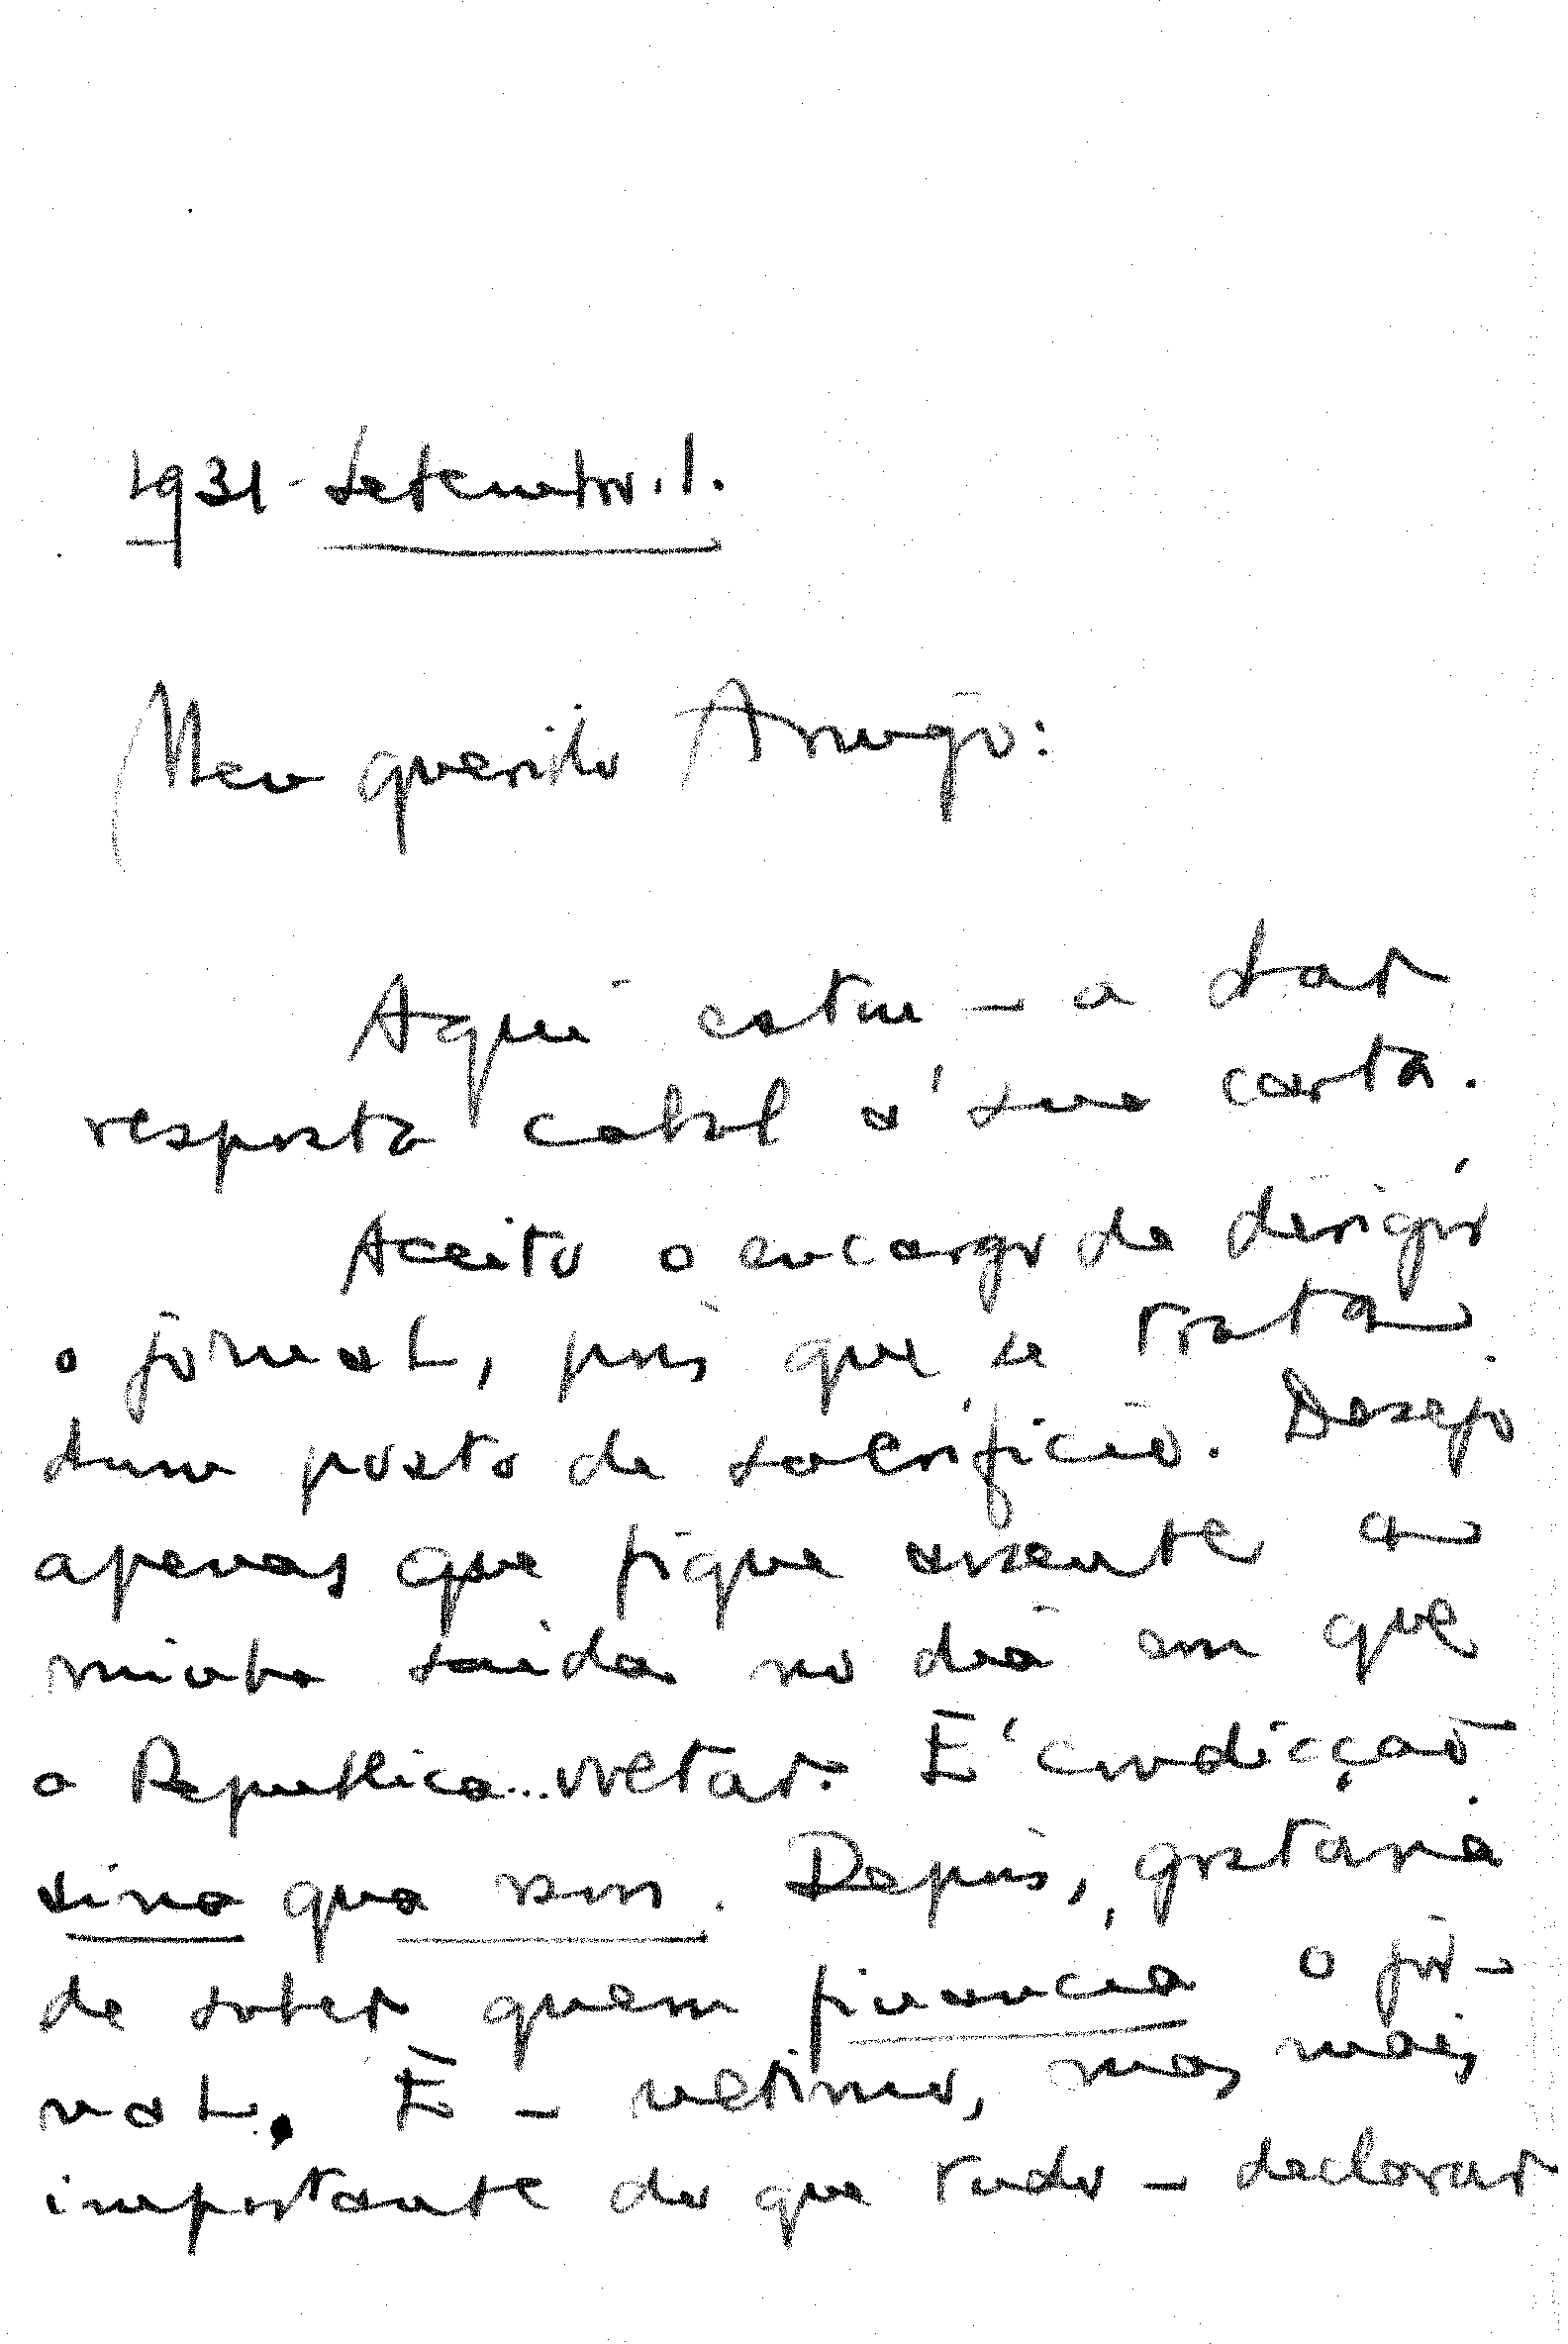 1931 - Setembro. 1.
Meu querido Amigo:
Aqui estou - a dar
resposta cabal á sua carta.
Aceito o encargo de dirigir
o jornal, pois que se trata
dum posto de sacrificio. Desejo
apenas que fique assente a
minha saida no dia em que
a Republica... voltar. É condicção
sine qua non. Depois, gostaria
de saber quem financia o jor-
nal. E - ultimo, mas mais
importante do que tudo - declarar